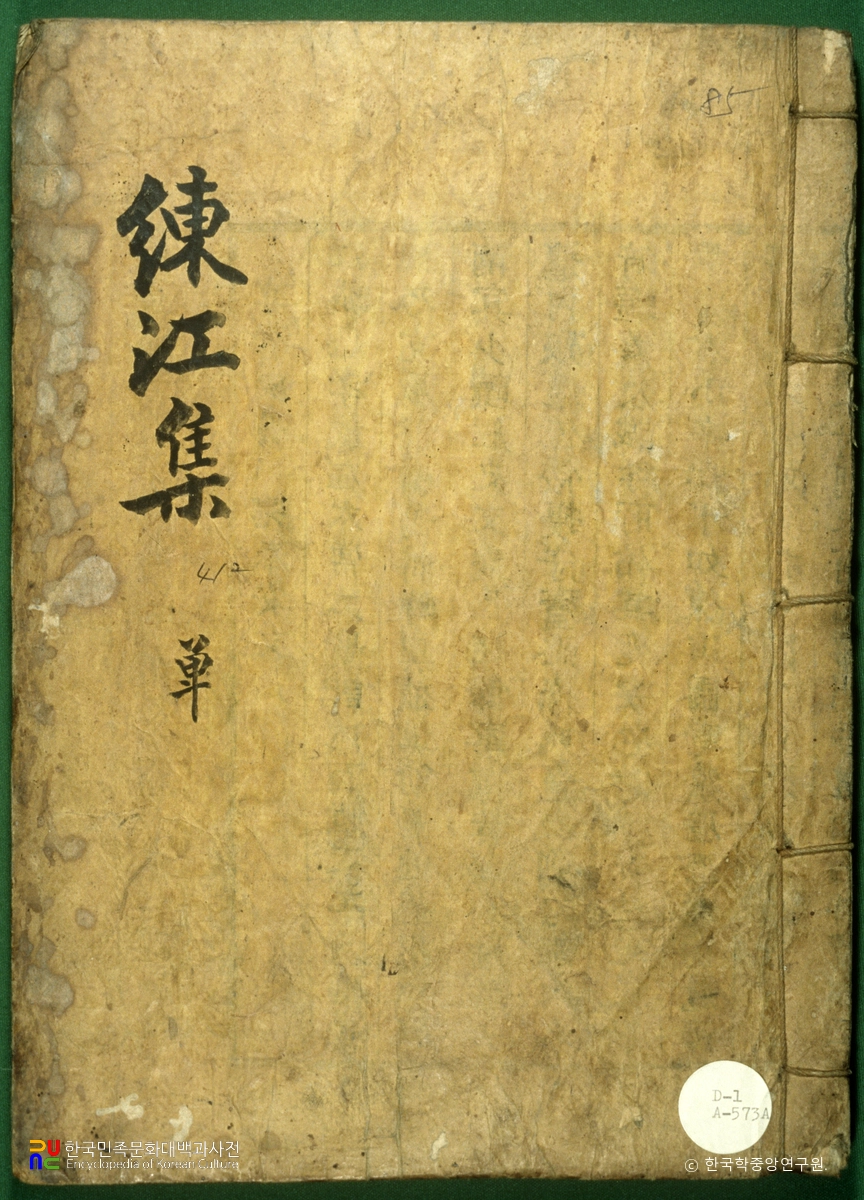 85
練江集
412
単
D-1
A-573A
한국민족문화대백과사전
Encyclopedia of Korean Culture
© 한국학중앙연구원.